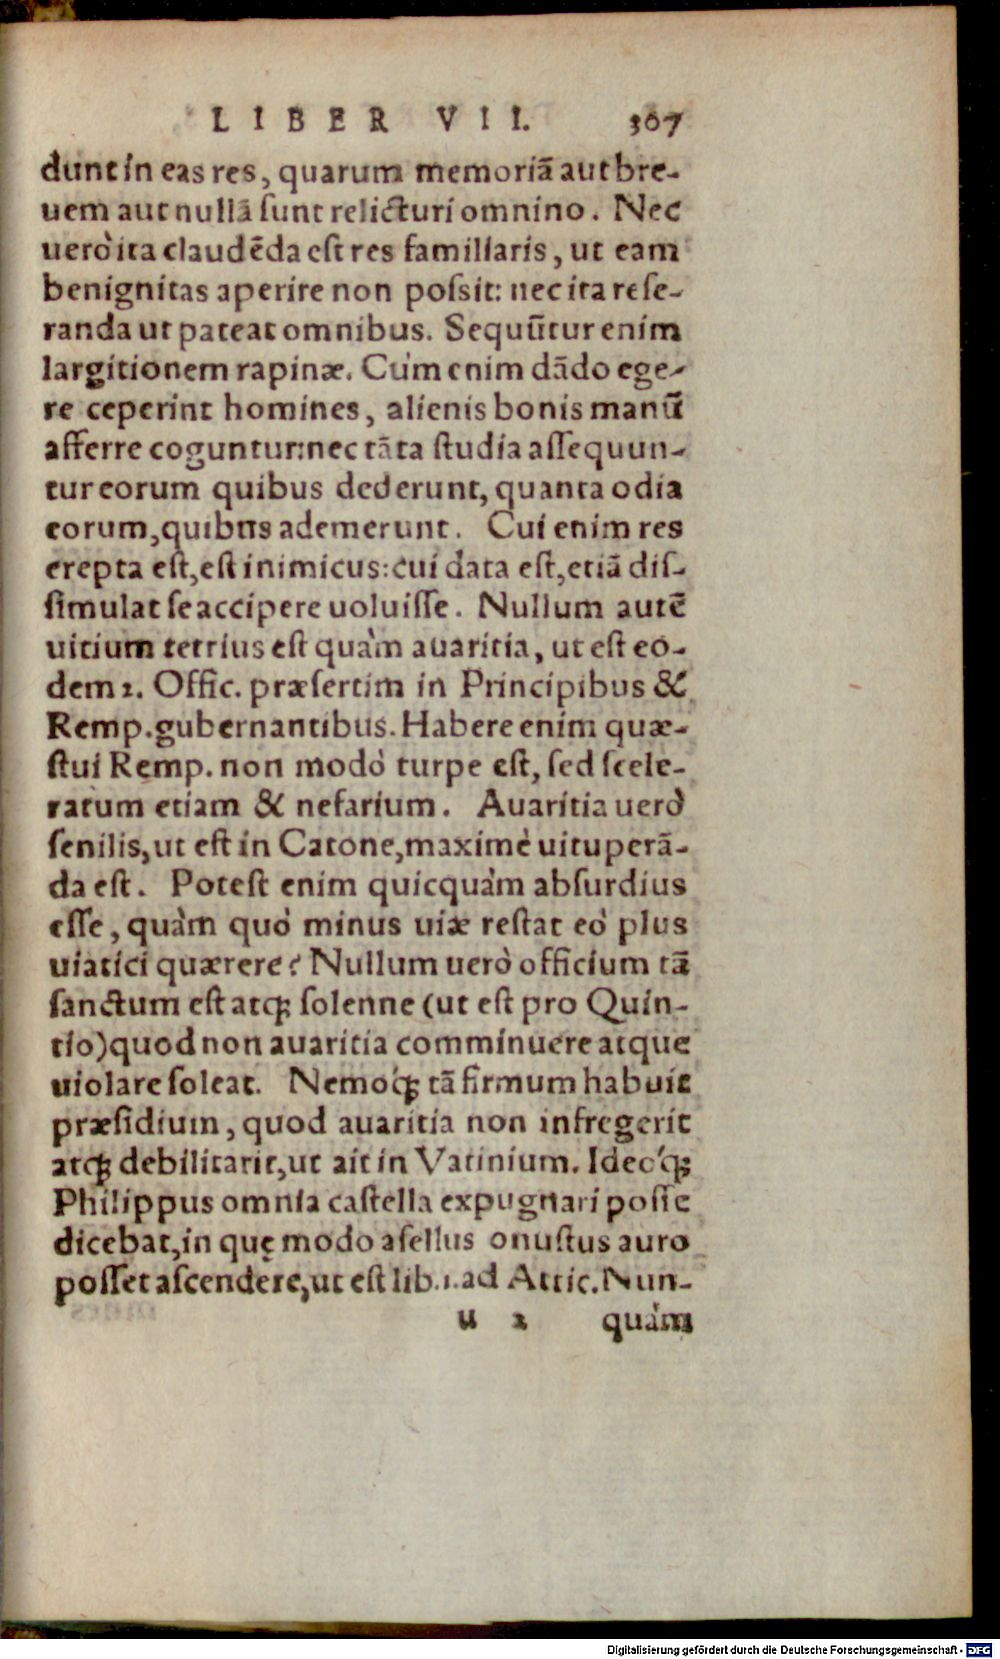 LIBER VII. 307
dunt in eas res, quarum memoriā aut bre-
uem aut nullā sunt relicturi omnino. Nec
uerò ita claudēda est res familiaris, ut eam
benignitas aperire non possit: nec ita rese-
randa ut pateat omnibus. Sequūtur enim
largitionem rapinæ. Cùm enim dādo ege-
re ceperint homines, alienis bonis manū
afferre coguntur: nec tāta studia assequun-
tur eorum quibus dederunt, quanta odia
eorum, quibus ademerunt. Cui enim res
erepta est, est inimicus: cui data est, etiā dis-
simulat se accipere uoluisse. Nullum autē
uitium tetrius est quàm auaritia, ut est eo-
dem 2. Offic. præsertim in Principibus &
Remp. gubernantibus. Habere enim quæ-
stui Remp. non modò turpe est, sed scele-
ratum etiam & nefarium. Auaritia uerò
senilis, ut est in Catone, maximè uituperā-
da est. Potest enim quicquàm absurdius
esse, quàm quò minus uiæ restat eò plus
uiatici quærere? Nullum uerò officium tā
sanctum est atq; solenne (ut est pro Quin-
tio) quod non auaritia comminuere atque
uiolare soleat. Nemoq́; tā firmum habuit
præsidium, quod auaritia non infregerit
atq; debilitarit, ut ait in Vatinium. Ideoq́;
Philippus omnia castella expugnari posse
dicebat, in quę modo asellus onustus auro
posset ascendere, ut est lib. 1. ad Attic. Nun-
u 2 quàm
Digitalisierung gefördert durch die Deutsche Forschungsgemeinschaft - DFG